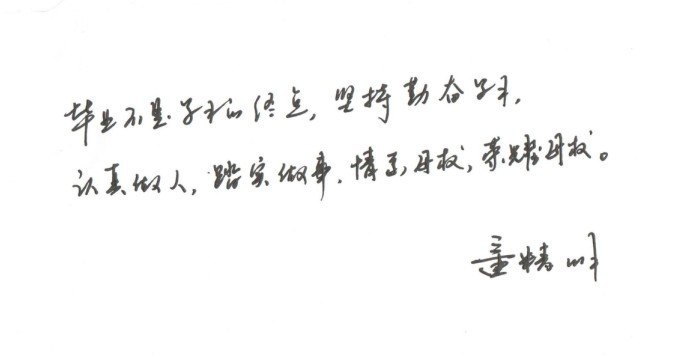 毕业不是学习的终点，坚持勤奋学习，
认真做人，踏实做事，情系母校，荣耀母校。
童精明